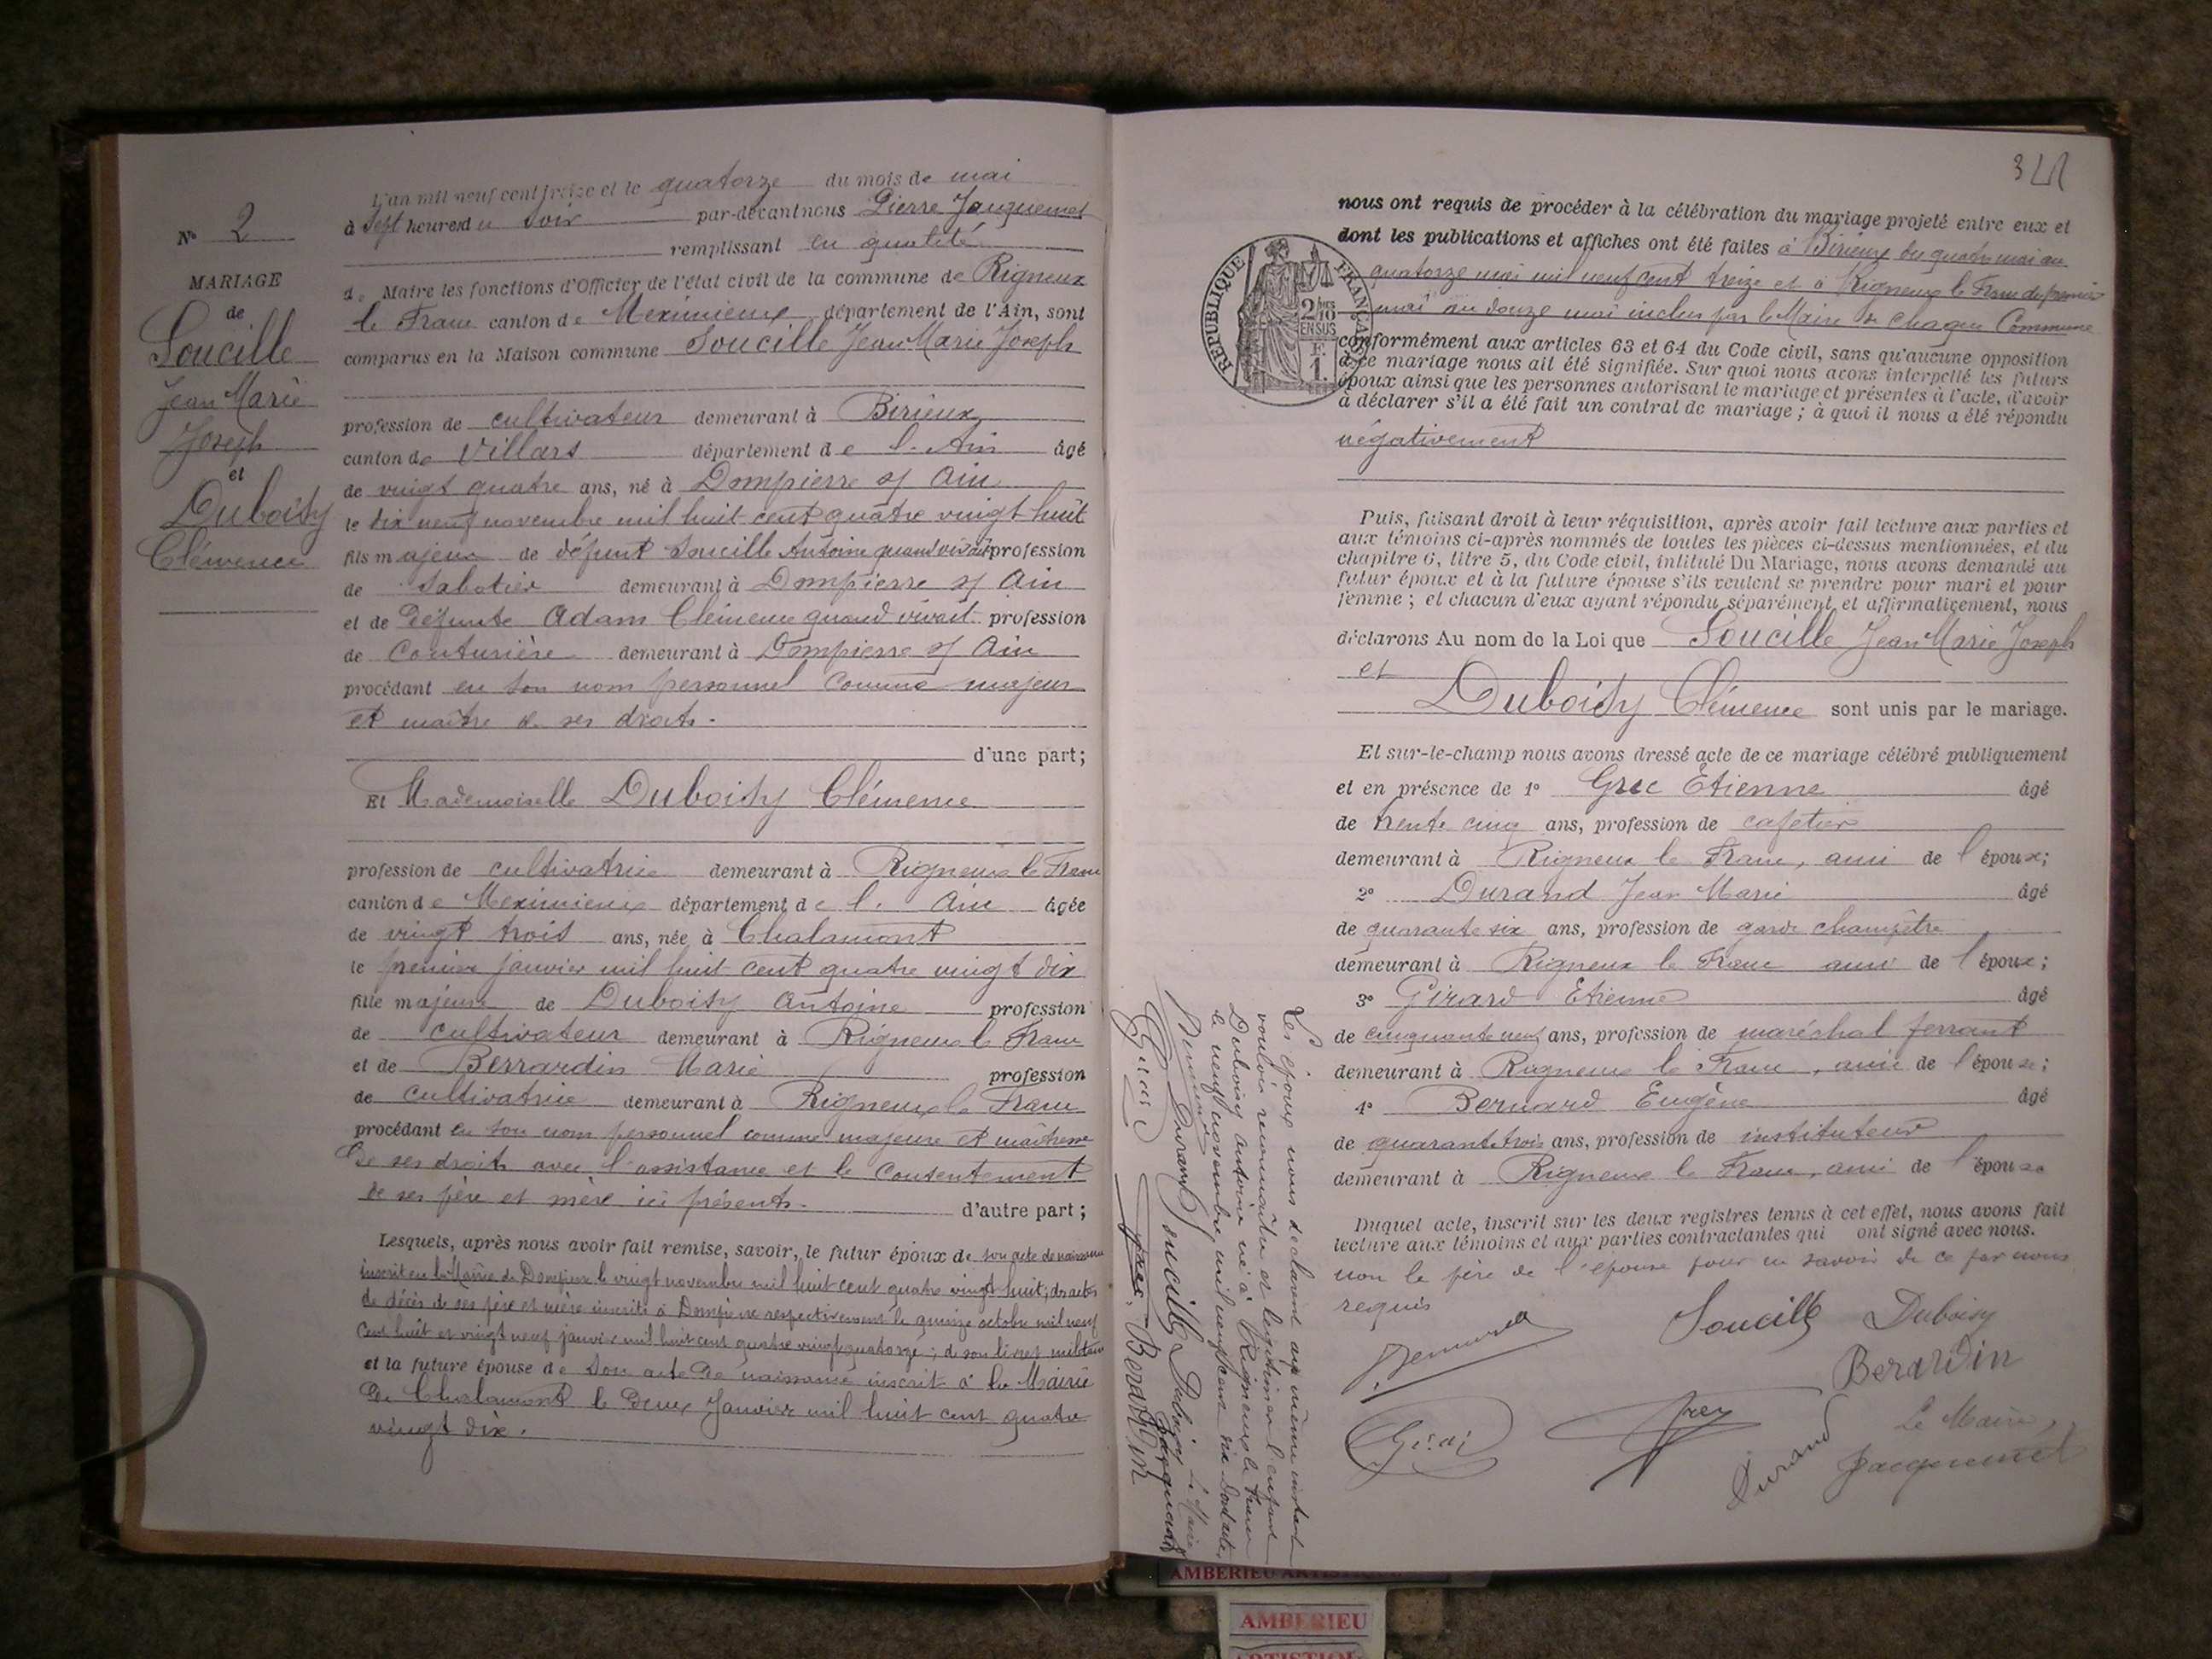 L'an mil neuf cent treize et le quatorze du mois de mai
à sept heures du soir par-devant nous Pierre Jacquemet
remplissant en qualité
de Maire les fonctions d'Officier de l'état civil de la commune de Rigneux
le Franc canton de Meximieux département de l'Ain, sont
comparus en la Maison commune Soucille Jean Marie Joseph
profession de cultivateur demeurant à Birieux
canton de Villars département de l'Ain âgé
de vingt quatre ans, né à Dompierre s/ Ain
le dix neuf novembre mil huit cent quatre vingt huit
fils majeur de défunt Soucille Antoine quand vivait profession
de Sabotier demeurant à Dompierre s/ Ain
et de Défunte Adam Clémence quand vivait profession
de Couturière demeurant à Dompierre s/ Ain
procédant en son nom personnel comme majeur
et maître de ses droits.
d'une part;
Et Mademoiselle Duboisy Clémence
profession de cultivatrice demeurant à Rigneux le Franc
canton de Meximieux département de l'Ain âgée
de vingt trois ans, née à Chalamont
le premier janvier mil huit cent quatre vingt dix
fille majeure de Duboisy Antoine profession
de cultivateur demeurant à Rigneux le Franc
et de Berrardin Marie profession
de cultivatrice demeurant à Rigneux le Franc
procédant en son nom personnel comme majeure et maîtresse
de ses droits avec l'assistance et le consentement
de ses père et mère ici présents.
d'autre part;
Lesquels, après nous avoir fait remise, savoir, le futur époux de son acte de naissance
inscrit en la Mairie de Dompierre le vingt novembre mil huit cent quatre vingt huit; des actes
de décès de ses père et mère inscrits à Dompierre respectivement le quinze octobre mil neuf
cent huit et vingt neuf janvier mil huit cent quatre vingt quatorze; de son livret militaire
et la future épouse de Son acte de naissance inscrit à la Mairie
de Chalamont le Deux Janvier mil huit cent quatre
vingt dix.
N° 2
MARIAGE
de
Soucille
Jean Marie
Joseph
et
Duboisy
Clémence
nous ont requis de procéder à la célébration du mariage projeté entre eux et
dont les publications et affiches ont été faites à Birieux du quatre mai au
quatorze mai mil neuf cent treize et à Rigneux le Franc du premier
mai au douze mai inclus par le Maire de chaque Commune
conformément aux articles 63 et 64 du Code civil, sans qu'aucune opposition
à ce mariage nous ait été signifiée. Sur quoi nous avons interpellé les futurs
époux ainsi que les personnes autorisant le mariage et présentes à l'acte, d'avoir
à déclarer s'il a été fait un contrat de mariage; à quoi il nous a été répondu
négativement
REPUBLIQUE FRANÇAISE
2/10 EN SUS
F.
1.
Puis, faisant droit à leur réquisition, après avoir fait lecture aux parties et
aux témoins ci-après nommés de toutes les pièces ci-dessus mentionnées, et du
chapitre 6, titre 5, du Code civil, intitulé Du Mariage, nous avons demandé au
futur époux et à la future épouse s'ils veulent se prendre pour mari et pour
femme; et chacun d'eux ayant répondu séparément et affirmativement, nous
déclarons Au nom de la Loi que Soucille Jean Marie Joseph
et
Duboisy Clémence sont unis par le mariage.
Et sur-le-champ nous avons dressé acte de ce mariage célébré publiquement
et en présence de 1° Grec Etienne âgé
de trente cinq ans, profession de cafetier
demeurant à Rigneux le Franc, ami de l'époux;
2° Durand Jean Marie âgé
de quarante six ans, profession de garde champêtre
demeurant à Rigneux le Franc ami de l'époux;
3° Girard Etienne âgé
de cinquante neuf ans, profession de maréchal ferrant
demeurant à Rigneux le Franc, ami de l'épouse;
4° Bernard Eugène âgé
de quarante trois ans, profession de instituteur
demeurant à Rigneux le Franc, ami de l'épouse
Duquel acte, inscrit sur les deux registres tenus à cet effet, nous avons fait
lecture aux témoins et aux parties contractantes qui ont signé avec nous.
non le père de l'épouse pour ne savoir de ce par nous
requis
Soucille Duboisy
Berardin
Le Maire,
Durand Jacquemet
Les époux nous déclarent au même instant
vouloir reconnaître et légitimer l'enfant
Duboisy Antoine né à Rigneux le Franc
le neuf novembre mil neuf cent dix
Durand Soucille Duboisy Le Maire
Berardin Jacquemet
AMBERIEU ARTISTIQUE
AMBERIEU
ARTISTIQUE